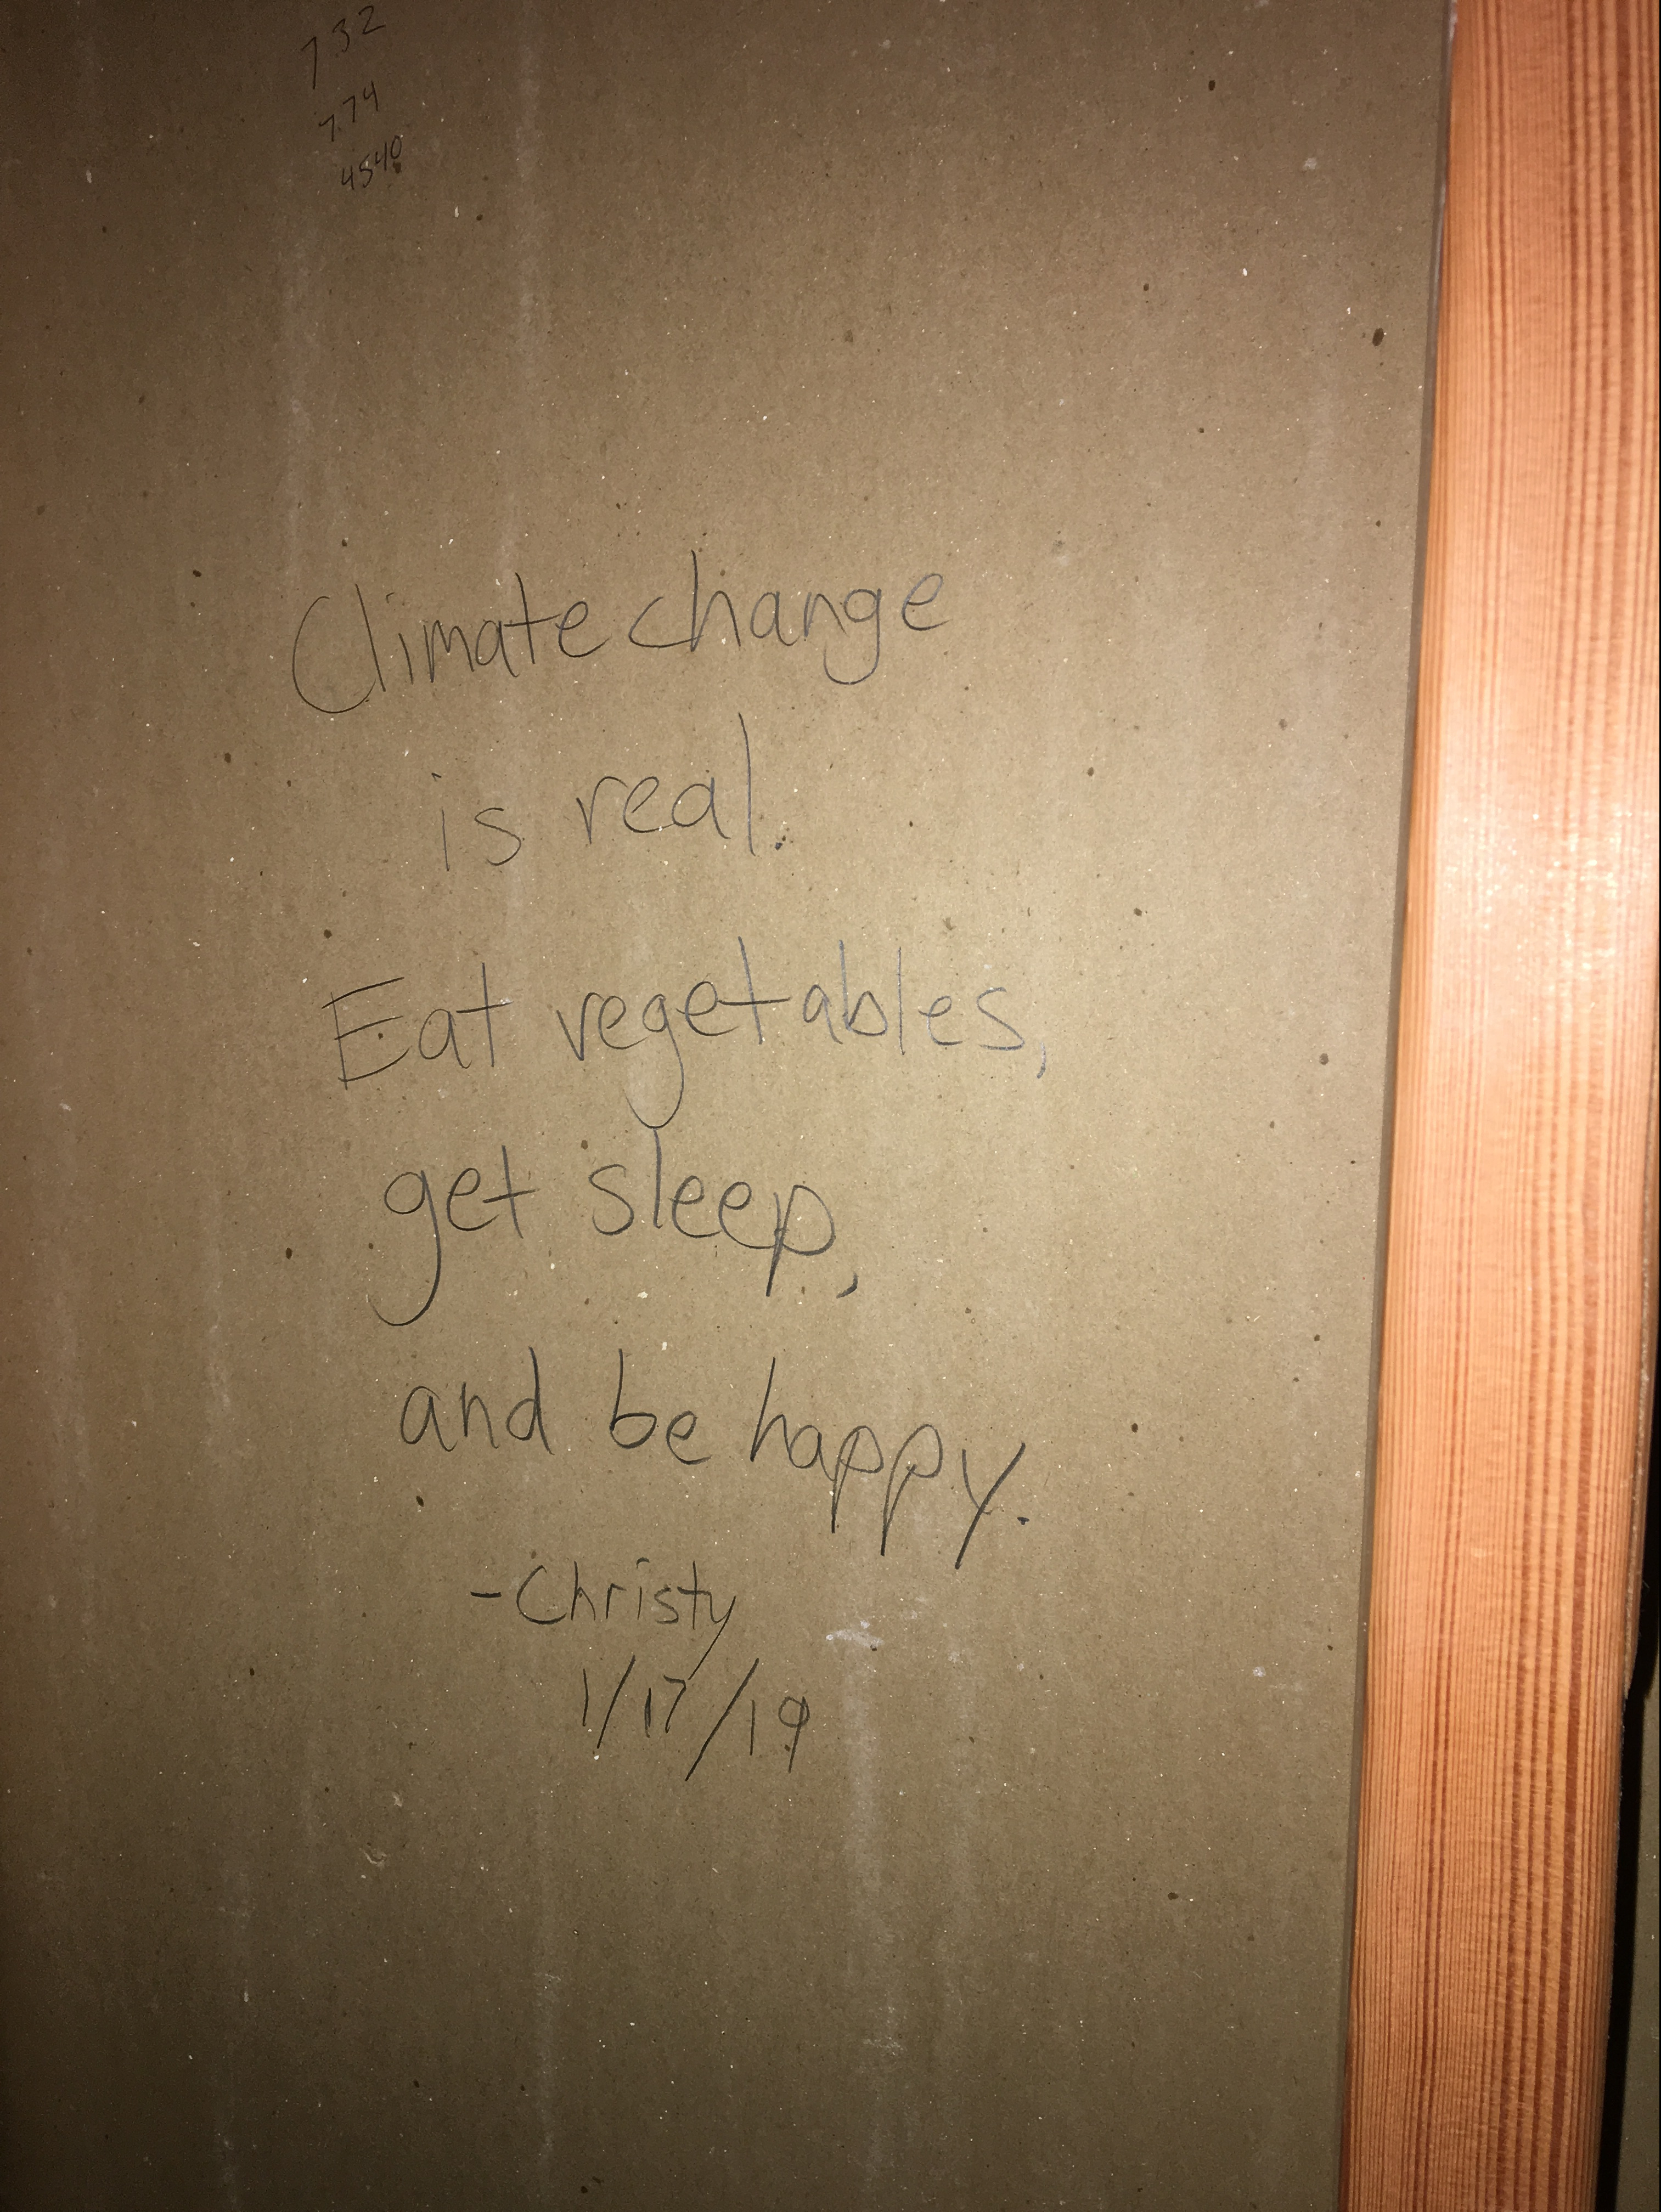 732
774
4540
Climate change
is real.
Eat vegetables,
get sleep,
and be happy.
-Christy
1/17/19